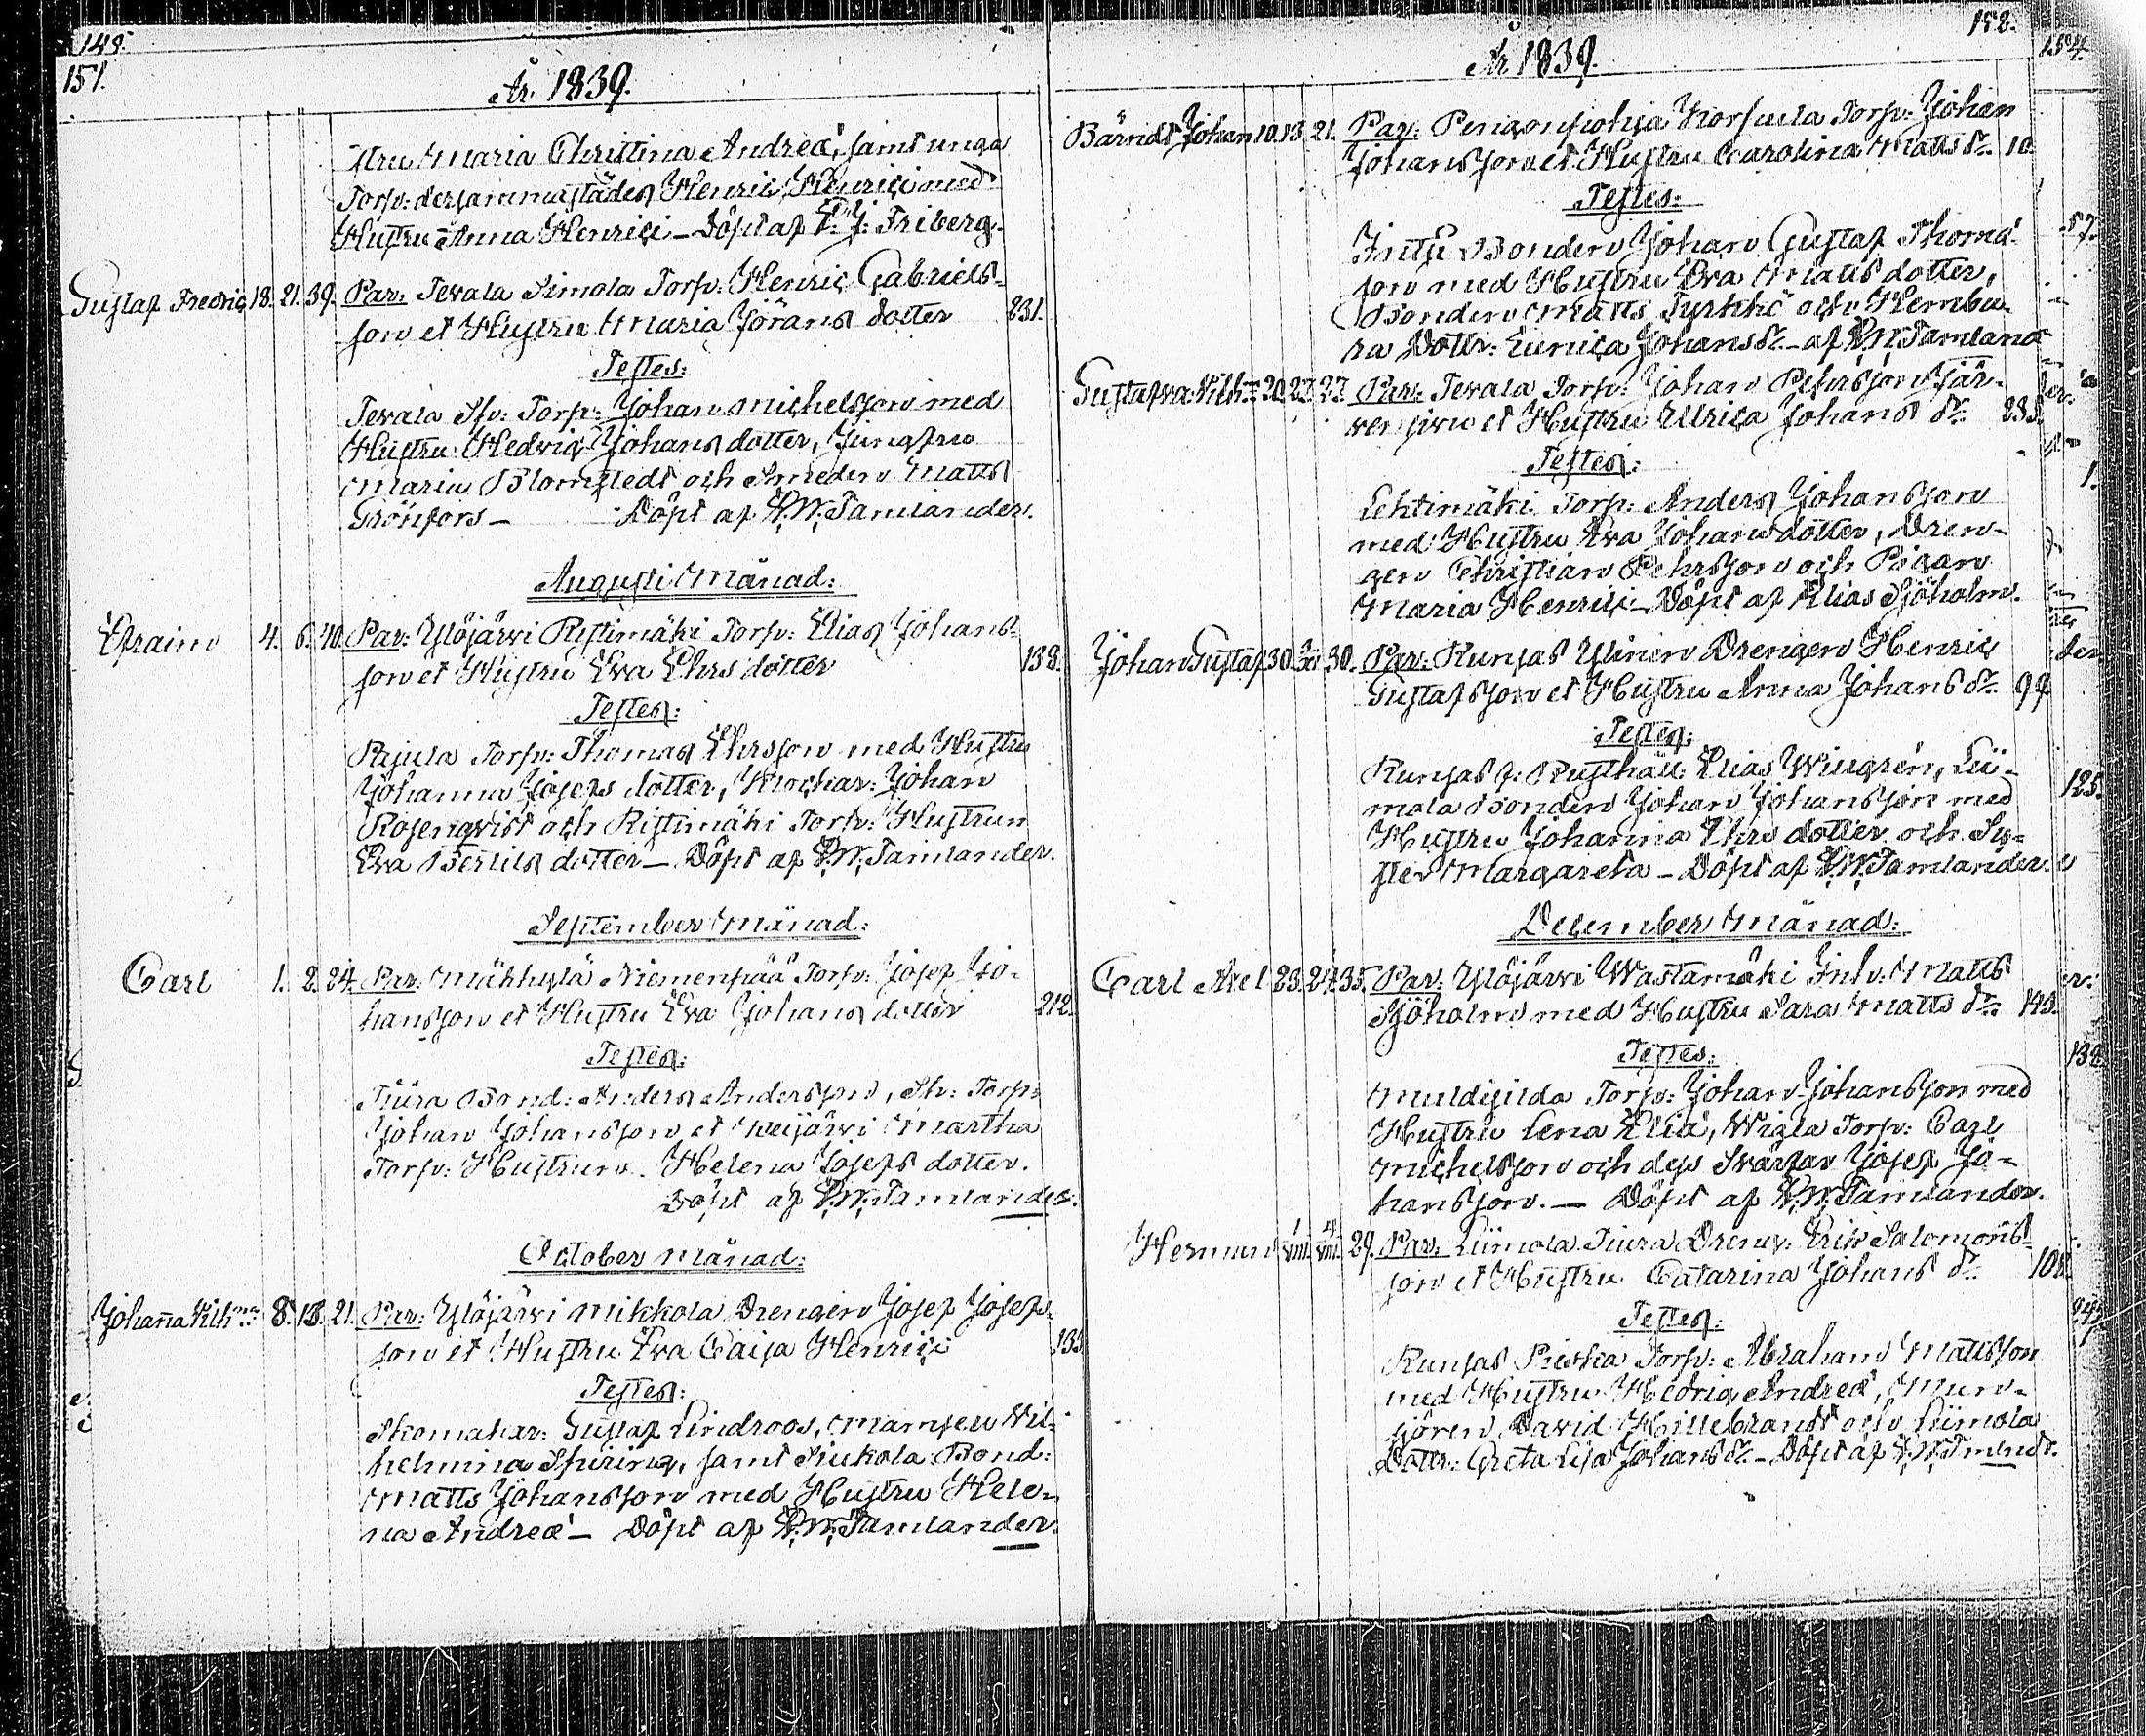 148.
151.
År. 1839.
stru Maria Christina Andreæ, samt unga
Torp: dersammastädes Henric Henrici med
Hustru Anna Henrici – Döpt af F. J. Friberg.
Gustaf Fredric 18. 21. 39. Par: Tevala Simola Torp: Henric Gabriels-
son et Hustru Maria Jörans dotter 231.
Testes:
Tevala Torp: Johan Michelsson med
Hustru Hedvig Johans dotter, Jungfru
Maria Blomstedt och Smeden Matts
Grönfors – Döpt af Tamlander.
Augusti Månad:
Efraim 4. 6. 40. Par: Ylöjärvi Ristimäki Torp: Elias Johans-
son et Hustru Eva Ehrs dotter 138.
Testes:
Pajula Torp: Thomas Ehrsson med Hustru
Johanna Josefs dotter, Klockar: Johan
Rosenqvist och Ristimäki Torp: Hustrun
Eva Bertils dotter – Döpt af Tamlander.
September Månad:
Carl 1. 2. 24. Par: Mäkkylä Niemenpää Torp: Josef Jo-
hansson et Hustru Eva Johans dotter 212.
Testes:
Tiura Bond: Anders Andersson, Torp:
Johan Johansson et Martha
Torp: Hustrun Helena Josefs dotter.
Döpt af Tamlander.
October Månad:
Johanna Vilh:na 8. 13. 21. Par: Ylöjärvi Mikkola Drengen Josef Josefs-
son et Hustru Eva Caisa Henrici 135
Testes:
Skomakar: Gustaf Lindroos, Mamsell Vil-
helmina Spiring, samt Siukola Bond:
Matts Johansson med Hustru Hele-
na Andreæ – Döpt af Tamlander.
152.
År 1839.
Bärndt Johan 10. 13. 21. Par: Pengonpohja Torp: Johan
Johansson et Hustru Carolina Matts dr. 10.
Testes:
Bonden Johan Gustaf Thomæ
son med Hustru Eva Matts dotter,
Bonden Matts och Hemba-
ra Dottr: Johans dr. – af Tamland
Gustafva Vilh:na 20. 27. 27. Par: Tevala Torp: Johan Pehrsson Jär-
ven et Hustru Ulrica Johans dr. 233.
Testes:
Lehtimäki Torp: Anders Johansson
med Hustru Eva Johans dotter, Dren-
gen Christian Pehrsson och Pigan
Maria Henrici – Döpt af Elias Sjöholm.
Johan Gustaf 30. 30. Par: Runsas Ylinen Drengen Henric
Gustafsson et Hustru Anna Johans dr. 99
Testes:
Runsas Rusthåll: Elias Wingrén, Lii-
mola Bonden Johan Johansson med
Hustru Johanna Ehrs dotter och Sy-
ster Margareta – Döpt af Tamlander.
December Månad:
Carl Axel 23. 24. 35. Par: Ylöjärvi Wastamäki Inh: Matts
Sjöholm med Hustru Sara Matts dr. 143.
Testes:
Torp: Johan Johansson med
Hustru Lena Eliæ, Torp: Carl
Michelsson och dess Svärfar Josef Jo-
hansson. – Döpt af Tamlander.
Herman 1/VIII. 4/VIII. 29. Par: Liimola Tiura Dreng: Erik Salomons-
son et Hustru Catarina Johans dr. 102.
Testes:
Runsas Torp: Abraham Mattsson
med Hustru Hedvig Andreæ, Muns-
gören David Hillebrandt och Liimola
Dottr: Greta Lisa Johans dr. – Döpt af
154.
57.
1.
125.
132.